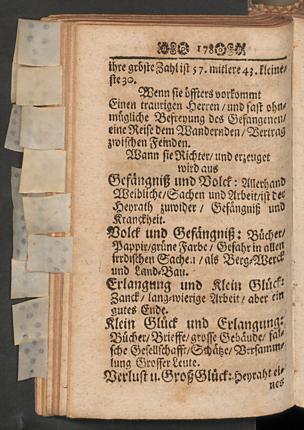 178
ihre gröste Zahl ist 57. mitlere 43. kleine-
ste 30.
Wenn sie öffters vorkommt
Einen traurigen Herren / und fast ohn-
mügliche Befreyung des Gefangenen /
eine Reise dem Wandernden / Vertrag
zwischen Feinden.
Wann sie Richter / und erzeuget
wird aus
Gefängniß und Volck: Allerhand
Weibliche / Sachen und Arbeit / ist der
Heyrath zuwider / Gefängniß und
Kranckheit.
Volck und Gefängniß: Bücher /
Pappir / grüne Farbe / Gefahr in allen
irrdischen Sachen / als Berg-Werck
und Land-Bau.
Erlangung und Klein Glück:
Zanck / lang-wierige Arbeit / aber ein
gutes Ende.
Klein Glück und Erlangung:
Bücher / Brieffe / grosse Gebäude / fal-
sche Gesellschafft / Schätze / Versamm-
lung Grosser Leute.
Verlust u. Groß Glück: Heyraht ei-
nes